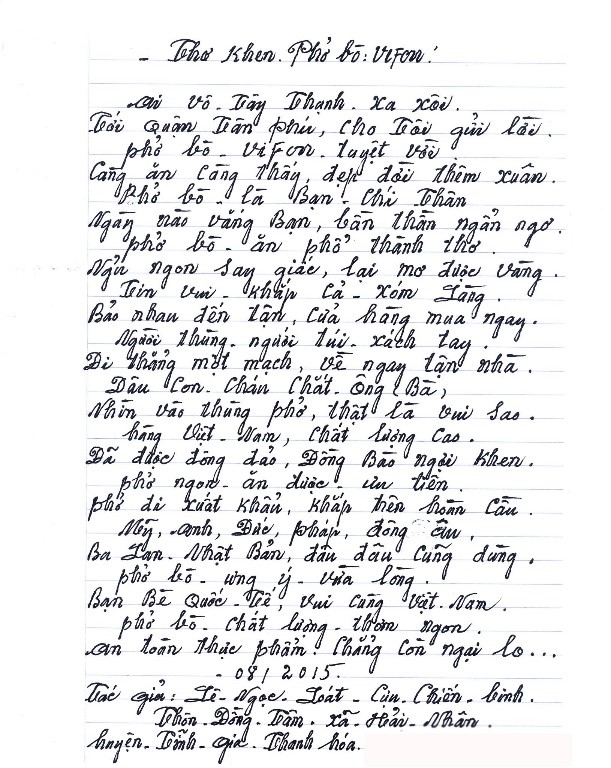 - Thơ Khen. Phở bò: ViFon!
Ai vô - Tây Thạnh - xa xôi.
Tới Quận Tân phú, cho Tôi gửi lời.
phở bò - ViFon - tuyệt vời
Càng ăn càng thấy, đẹp đời thêm xuân.
Phở bò - là Bạn - Chí Thân
Ngày nào vắng Bạn, bần thần ngẩn ngơ.
phở bò - ăn phở thảnh thơ.
Ngủ ngon say giấc, lại mơ được vàng.
Tin vui - khắp cả - xóm Làng.
Bảo nhau đến tận, cửa hàng mua ngay.
Người thùng - người túi - xách tay.
Đi thẳng một mạch, về ngay tận nhà.
Dâu Con - Cháu Chắt - Ông Bà,
Nhìn vào thùng phở, thật là vui sao.
hàng Việt - Nam, Chất lượng Cao.
Đã được đông đảo, Đồng Bào ngợi khen.
phở ngon - ăn được - ưu tiên.
phở đi xuất khẩu, khắp trên hoàn Cầu.
Mỹ, Anh, Đức, pháp, đông âu,
Ba Lan - Nhật Bản, đâu đâu Cũng dùng.
phở bò - ưng ý - vừa lòng.
Bạn Bè Quốc - Tế, vui Cùng Việt - Nam.
phở bò - Chất lượng - thơm ngon.
An toàn thực phẩm: Chẳng Còn ngại lo...
- 08/2015.
Tác giả: Lê - Ngọc - Loát - Cựu - Chiến - binh.
Thôn - Đồng - Tâm - xã - Hải - Nhân.
huyện - Tĩnh - gia - Thanh hóa.